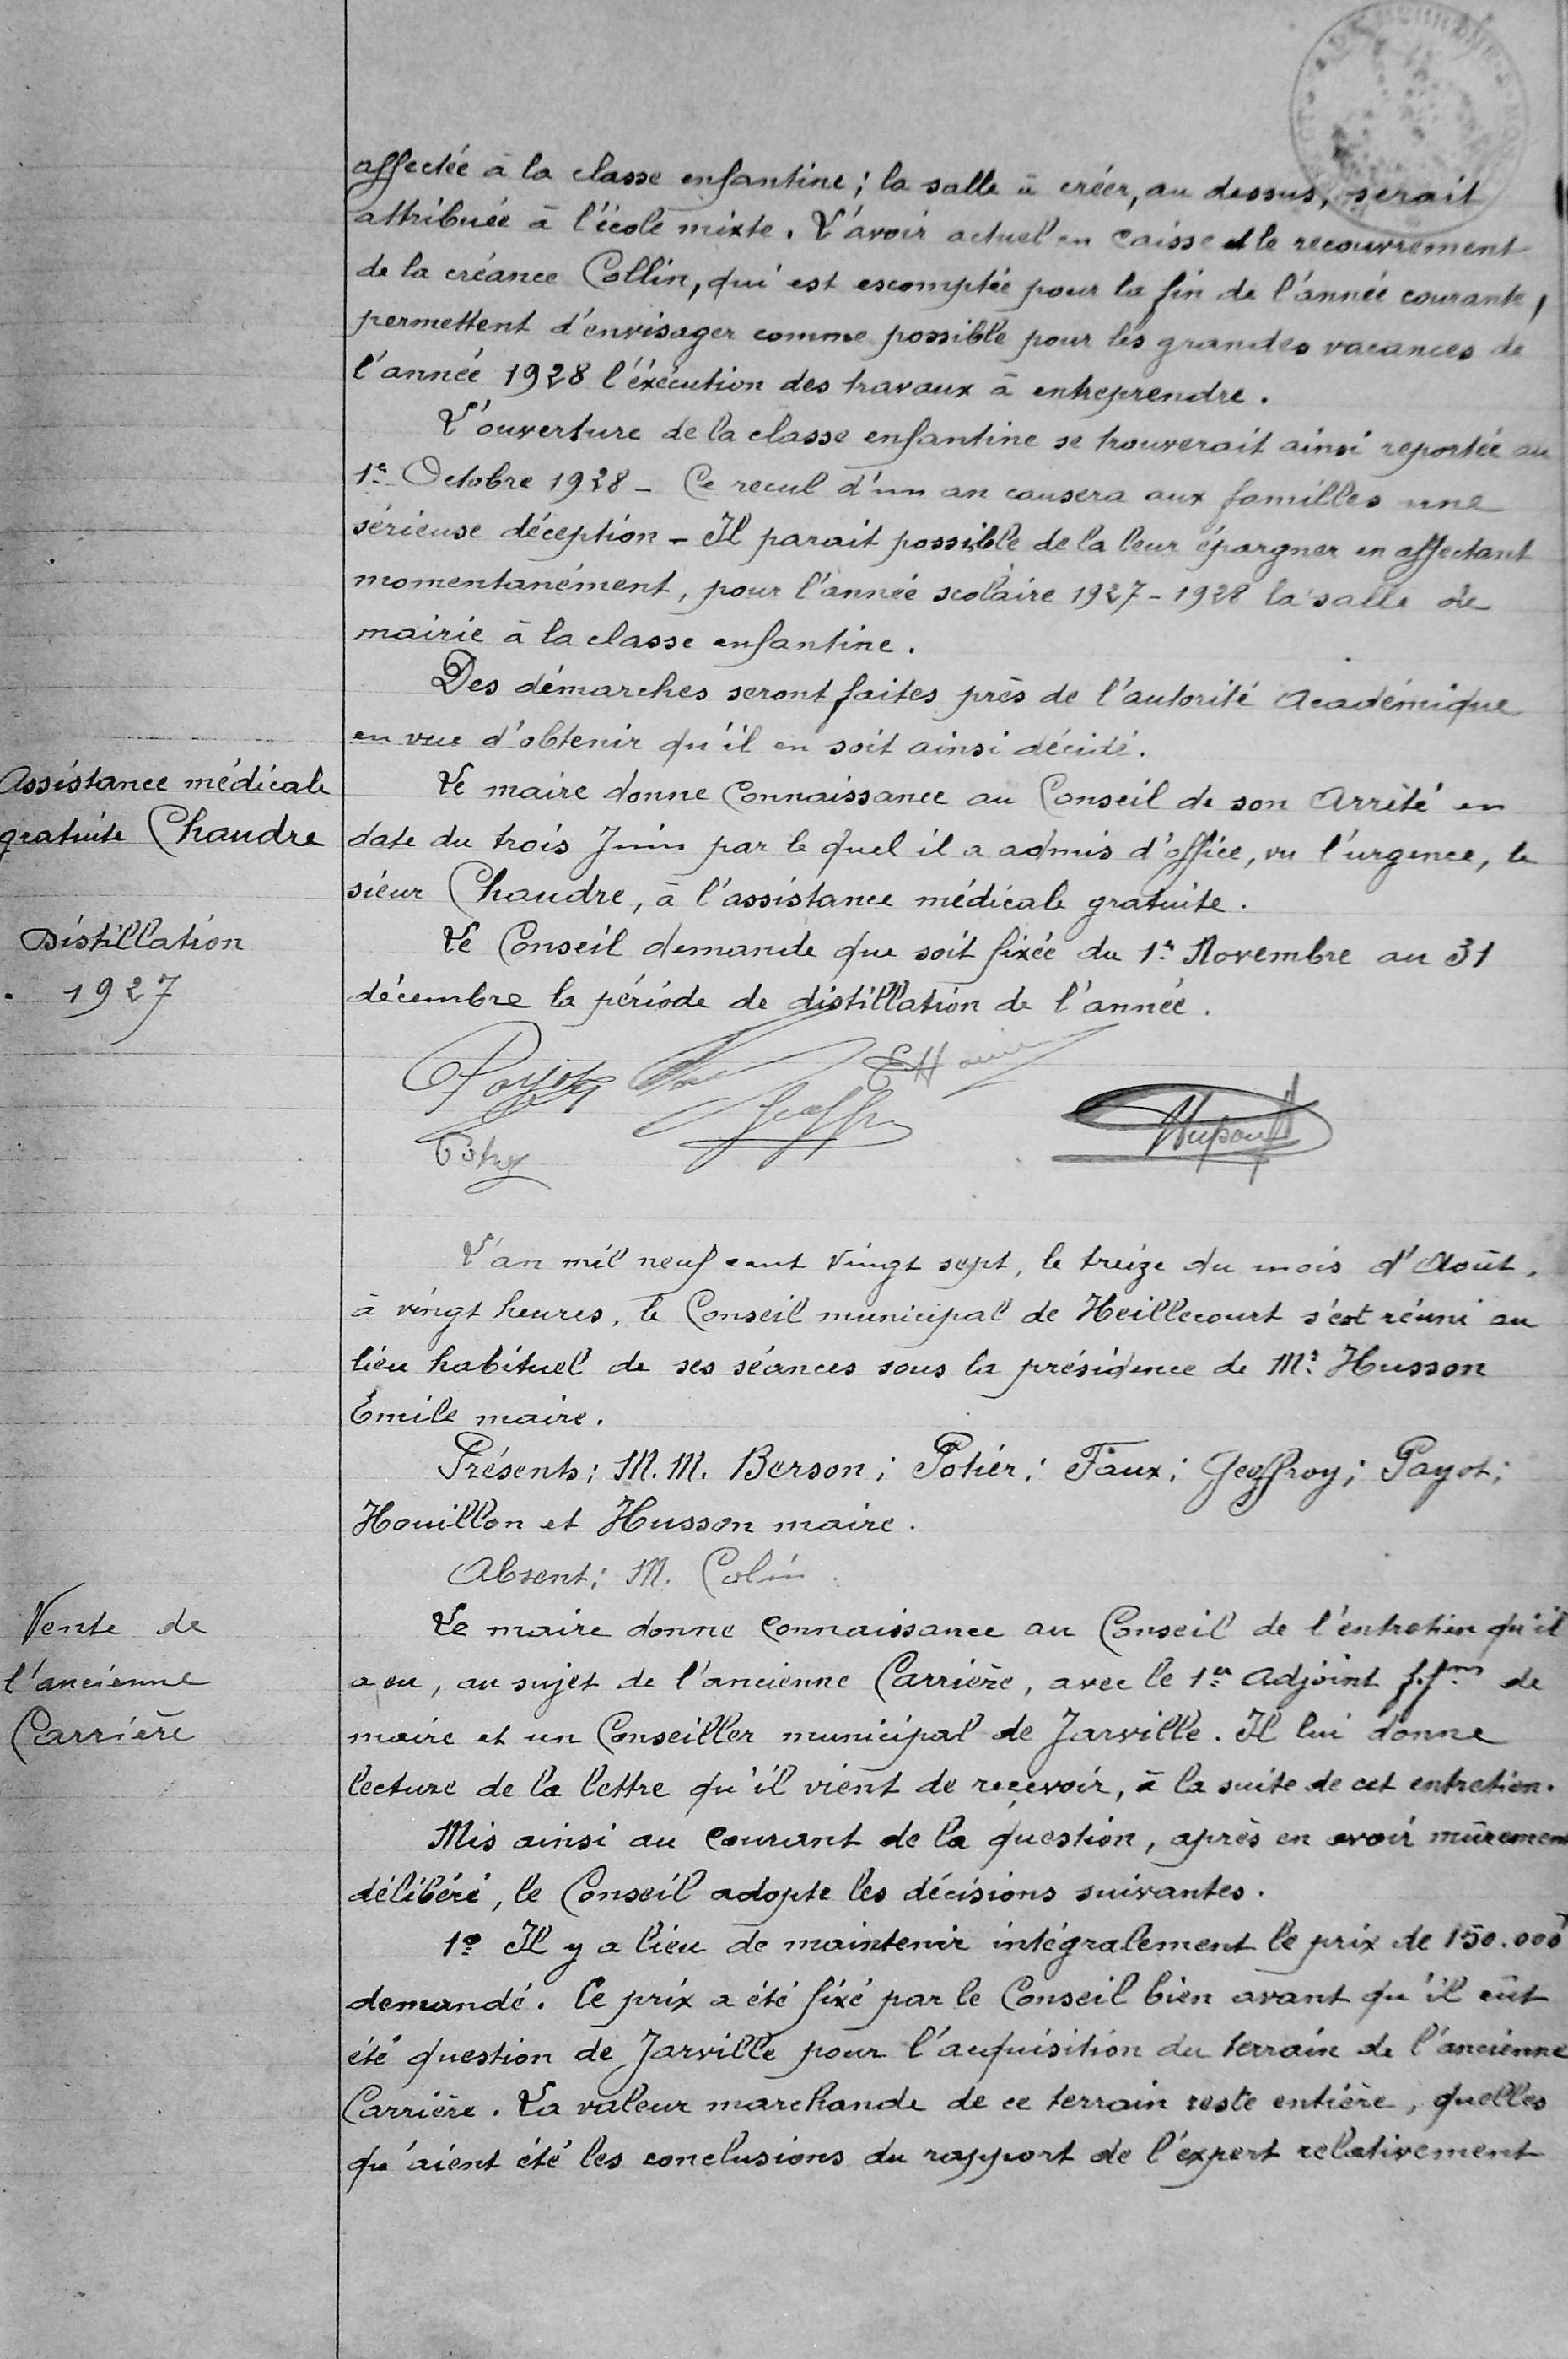 affectée à la classe enfantine ; la salle à créer, au dessus, serait
attribuée à l'école mixte. L'avoir actuel en caisse et le recouvrement
de la créance Collin, qui est escomptée pour la fin de l'année courante,
permettent d'envisager comme possible pour les grandes vacances de
l'année 1928 l'éxécution des travaux à entreprendre.
L'ouverture de la classe enfantine se trouverait ainsi reportée au
1er Octobre 1928 - Ce recul d'un an causera aux familles une
sérieuse déception - Il parait possible de la leur épargner en affectant
momentanément, pour l'année scolaire 1927-1928 la salle de
mairie à la classe enfantine.
Des démarches seront faites près de l'autorité Académique
en vue d'obtenir qu'il en soit ainsi décidé.
Assistance médicale
gratuite Chaudre
Le maire donne Connaissance au Conseil de son Arrêté en
date du trois Juin par le quel il a admis d'office, vu l'urgence, le
sieur Chaudre, à l'assistance médicale gratuite.
Distillation
1927
Le Conseil demande que soit fixée du 1er Novembre au 31
décembre la période de distillation de l'année.
Payot
L'an mil neuf cent vingt sept, le treize du mois d'Août,
à vingt heures, le Conseil municipal de Heillecourt s'est réuni au
lieu habituel de ses séances sous la présidence de Mr Husson
Emile maire.
Présents ; M.M. Berson ; Potier ; Faux ; Geoffroy ; Payot ;
Houillon et Husson maire.
Absent ; M. Colin.
Vente de
l'ancienne
Carrière
Le maire donne Connaissance au Conseil de l'entretien qu'il
a eu, au sujet de l'ancienne Carrière, avec le 1er Adjoint f.fons de
maire et un Conseiller municipal de Jarville. Il lui donne
lecture de la lettre qu'il vient de recevoir, à la suite de cet entretien.
Mis ainsi au Courant de la question, après en avoir mûremen
délibéré, le Conseil adopte les décisions suivantes.
1º Il y a lieu de maintenir intégralement le prix de 150.000f
demandé. Ce prix a été fixé par le Conseil bien avant qu'il eût
été question de Jarville pour l'acquisition du terrain de l'ancienne
Carrière. La valeur marchande de ce terrain reste entière, quelles
qu'aient été les conclusions du rapport de l'expert relativement